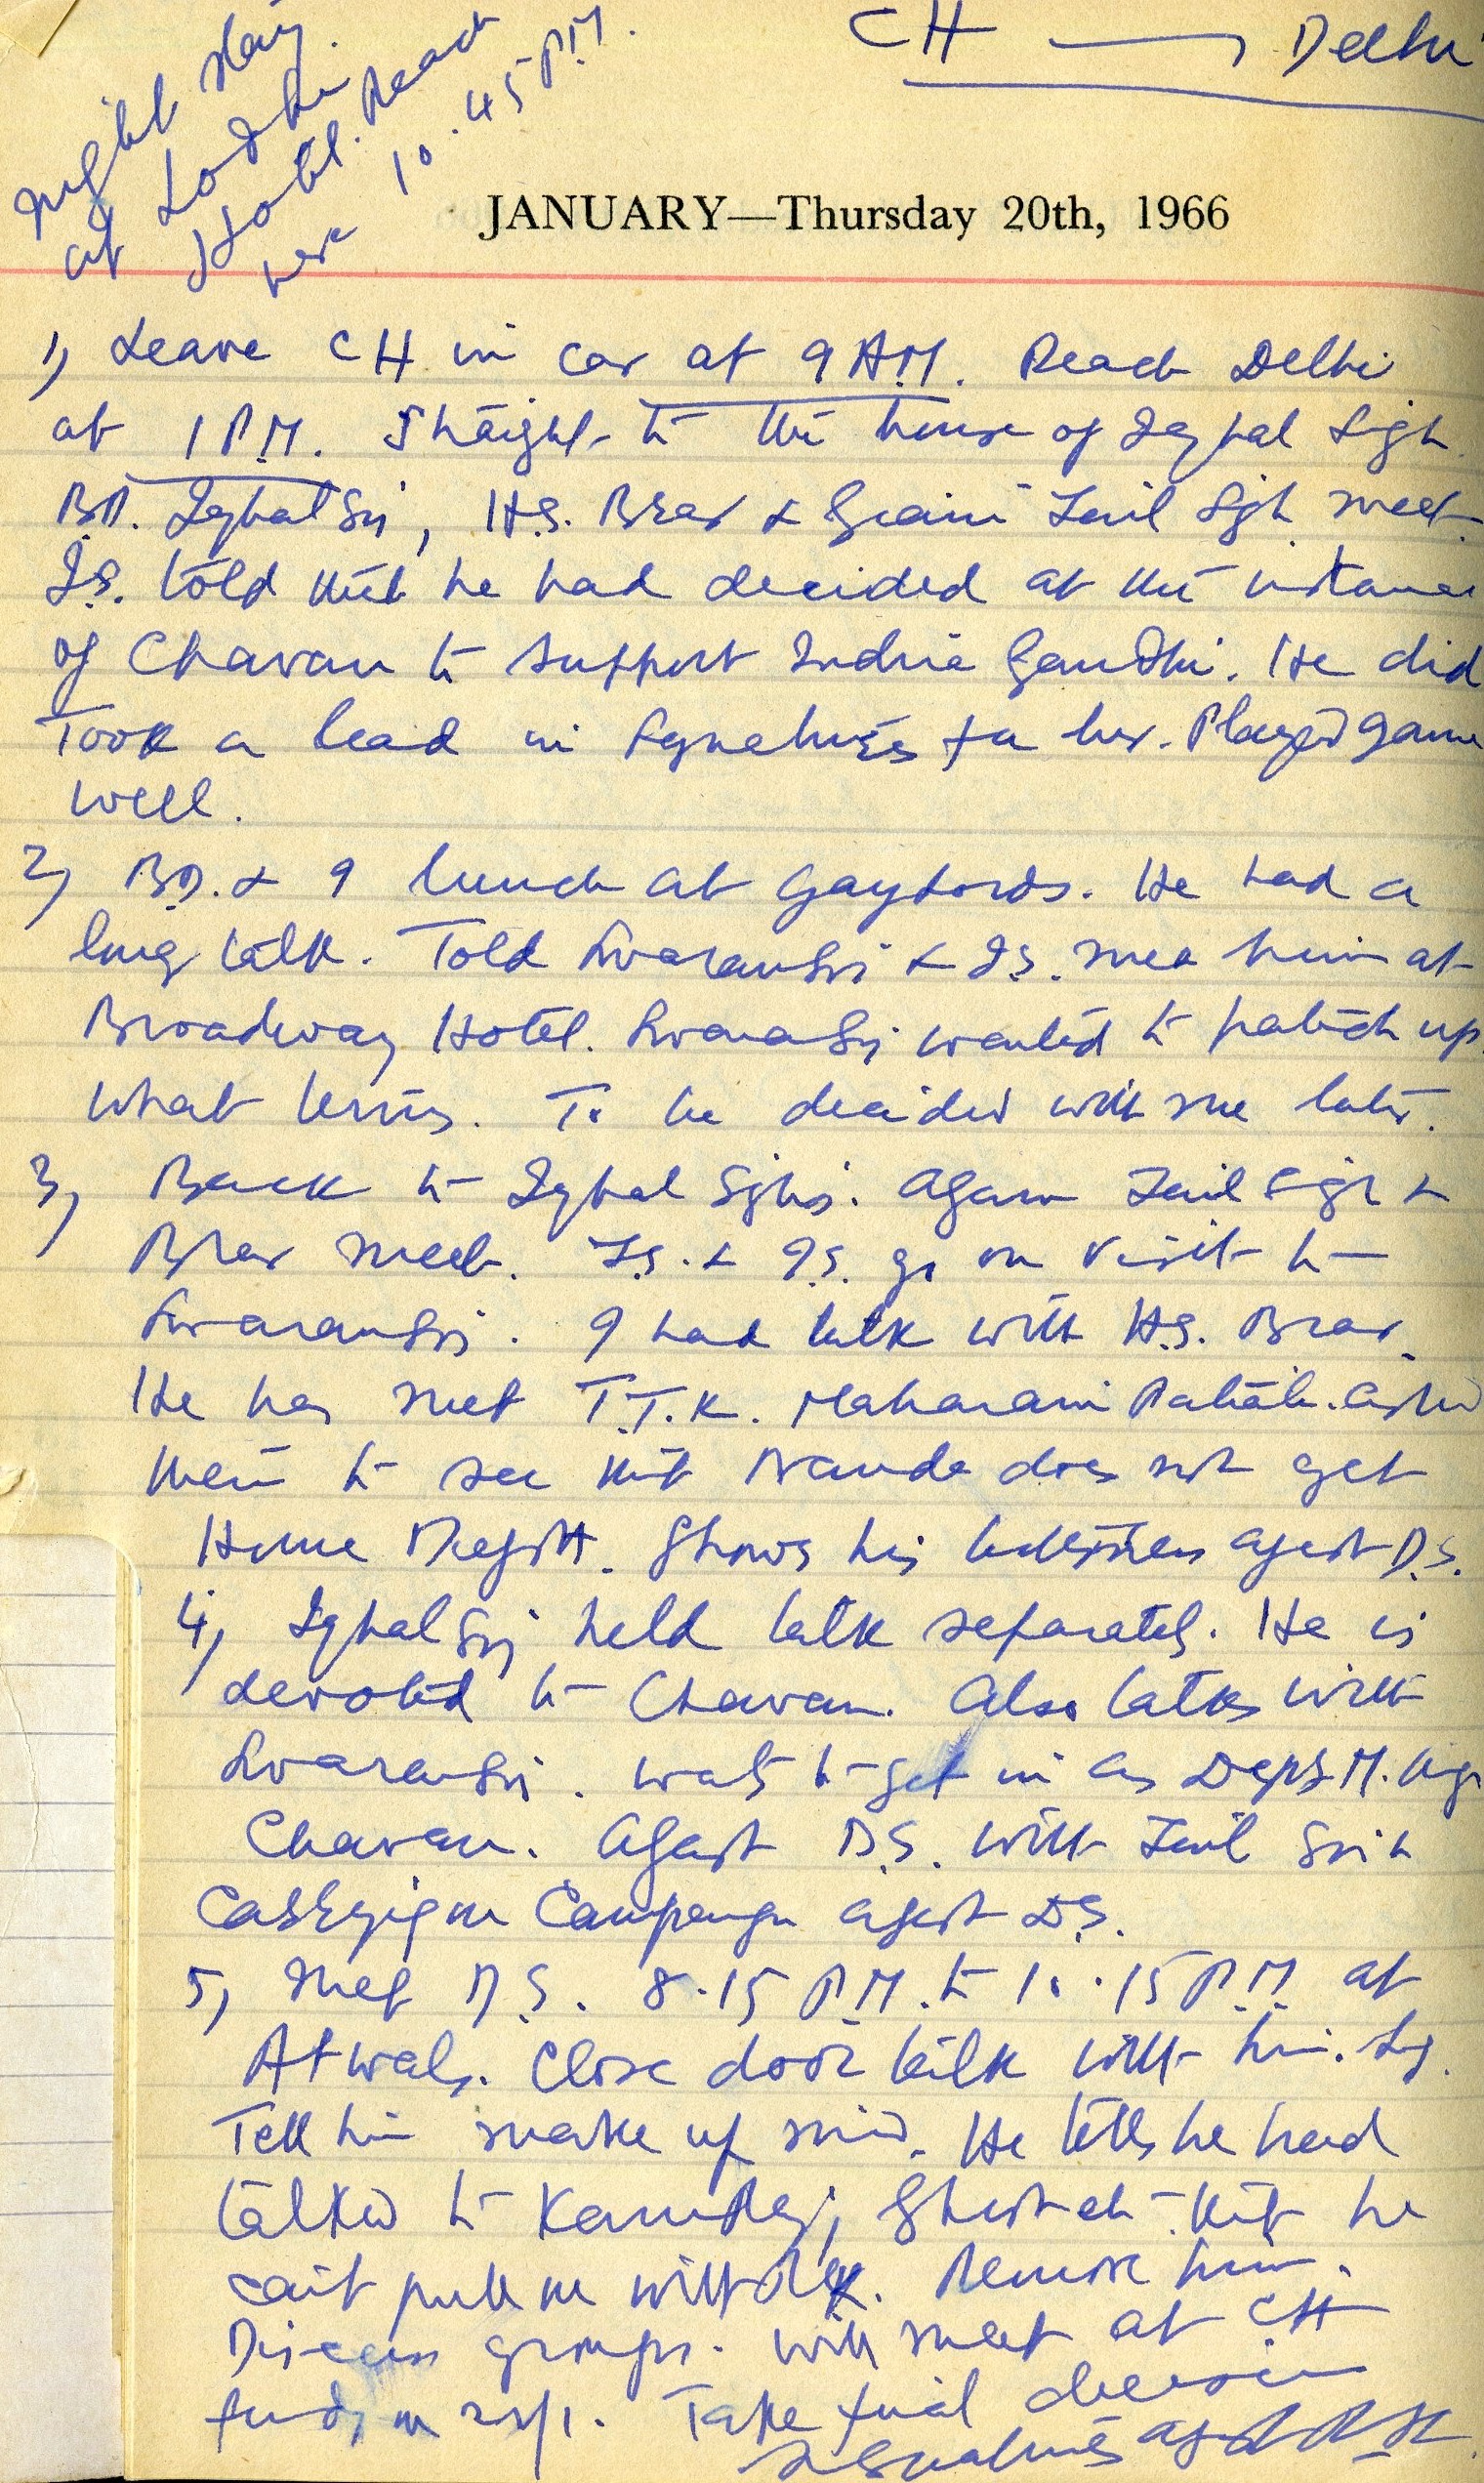 CH → Delhi
Night stay
at Lodhi
Hotel. Reach
here 10.45 PM.
JANUARY—Thursday 20th, 1966
1) Leave CH in car at 9 AM. Reach Delhi
at 1 P.M. Straight to the house of Iqbal Sigh
BD. Iqbal Sij, H.S. Brar & Giani Zail Sgh meet.
I.S. told that he had decided at the instance
of Chavan to support Indira Gandhi. He did
Took a lead in signatures for her. Played game
well.
2) B.D. & I lunch at Gaylords. He had a
long talk. Told Swaransij & I.S. met him at
Broadway Hotel. Swaransij wanted to patch up
What terms. To be decided with me later.
3) Back to Iqbal Sighs. Again Zail Sigh &
Brar meet. Z.S. & I.S. go on visit to
Swaransij. I had talk with H.S. Brar.
He has met T.T.K. Maharani Patiala. Asked
them to see that Nanda does not get
Home Deptt. Shows his bitterness agast D.S.
4) Iqbal Sij held talk separately. He is
devoted to Chavan. Also talks with
Swaransij. wants to get in as Depty M.
Chavan. Agast D.S. with Zail Sigh
Carrying on Campaign agast D.S.
5) Met D.S. 8.15 P.M. to 10.15 P.M. at
Atwals. Close door talk with him.
Tell him make up mind. He tells he had
talked to Kamraj, that he
can't pull on with R.K. Remove him.
Discuss groups. Will meet at CH
on Take final decision
signatures agast R.K.